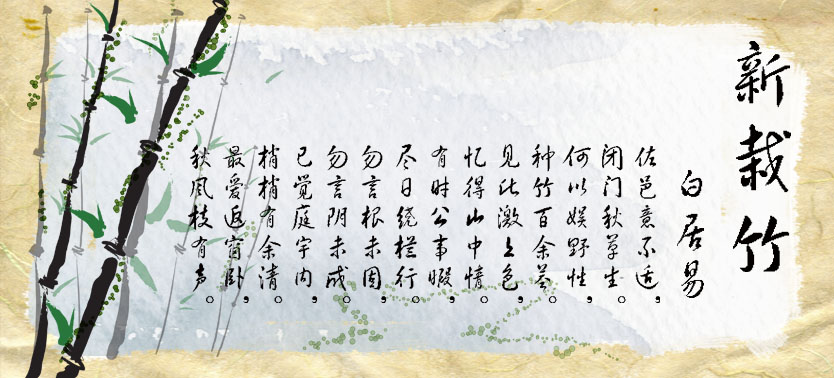 新栽竹
白居易
佐邑意不适,
闭门秋草生。
何以娱野性,
种竹百余茎。
见此激上色,
忆得山中情。
有时公事暇,
尽日绕栏行。
勿言根未固,
勿言阴未成。
已觉庭宇内,
梢梢有余清。
最爱近窗卧,
秋风枝有声。